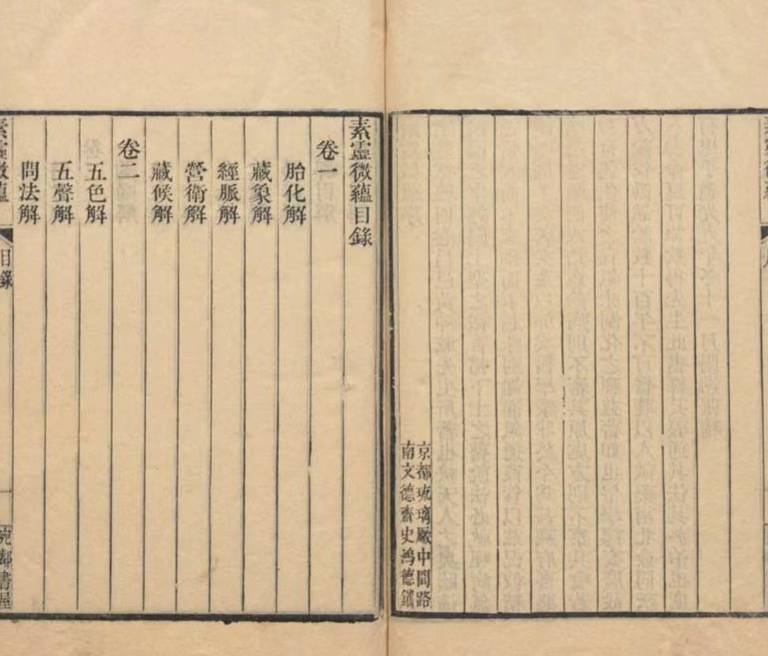 京都琉璃厰中間路
南文德齋史鴻德鐫
素靈微蘊目錄
卷一
胎化解
藏象解
經脈解
營衛解
藏候解
卷二
五色解
五聲解
問法解
素靈微蘊
目錄
一
宛鄰書屋